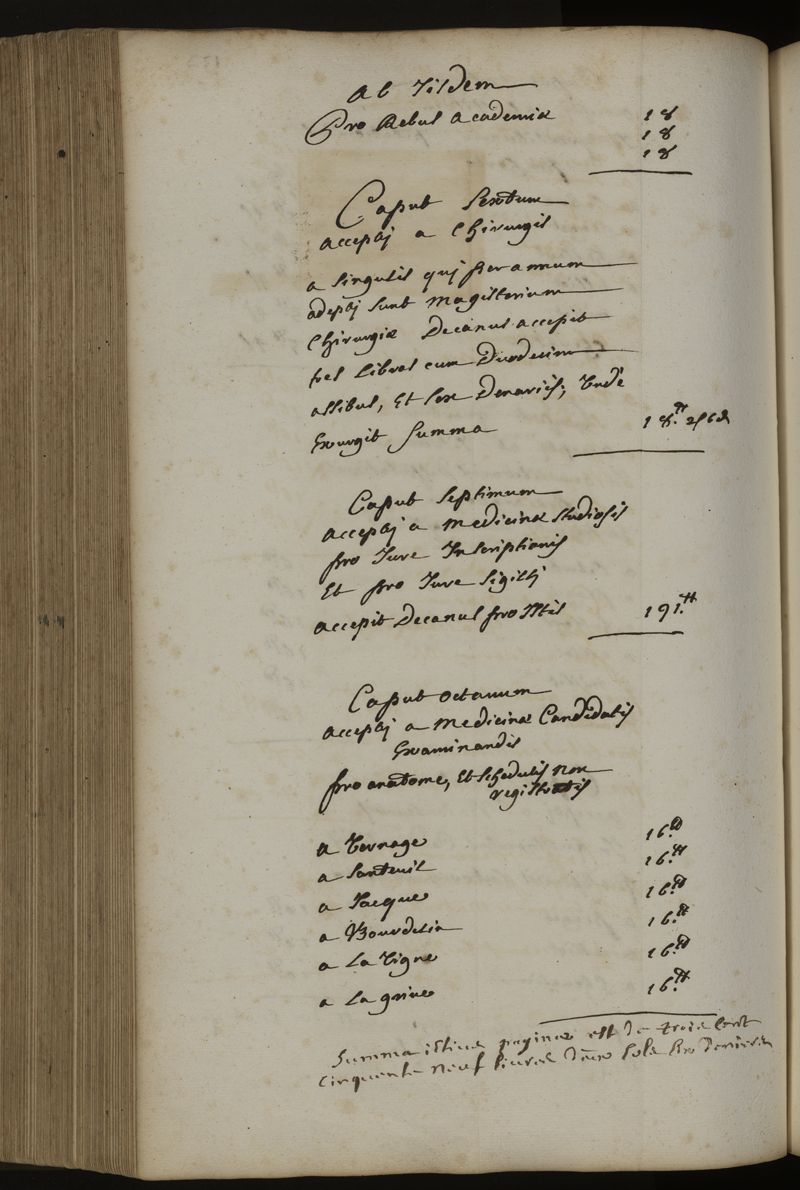 Ab Iisdem
Pro Rebus Academiæ 18
18
18
Caput Sextum
accepti a Chirurgis
a singulis qui per annum
adepti sunt magisterium
Chirurgiæ Decanus accepit
tres libras cum Duodecim
assibus, Et sex Denariis; Unde
Exurgit Summa 18.tt 2s 6d
Caput Septimum
accepti a medicinæ studiosis
pro Jure Inscriptionis
Et pro Jure Sigilli
accepit Decanus pro Illis 191.tt
Caput octavum
accepti a medicinæ Candidatis
Examinandis
pro anatome, Et schedulis non
registratis
a Vernage 16.tt
a Santeuil 16.tt
a Jacques 16.tt
a Bourdelin 16.tt
a La Vigne 16.tt
a La grive 16.tt
Summa istius paginæ est de trois cent
cinquante neuf livres deux sols six deniers